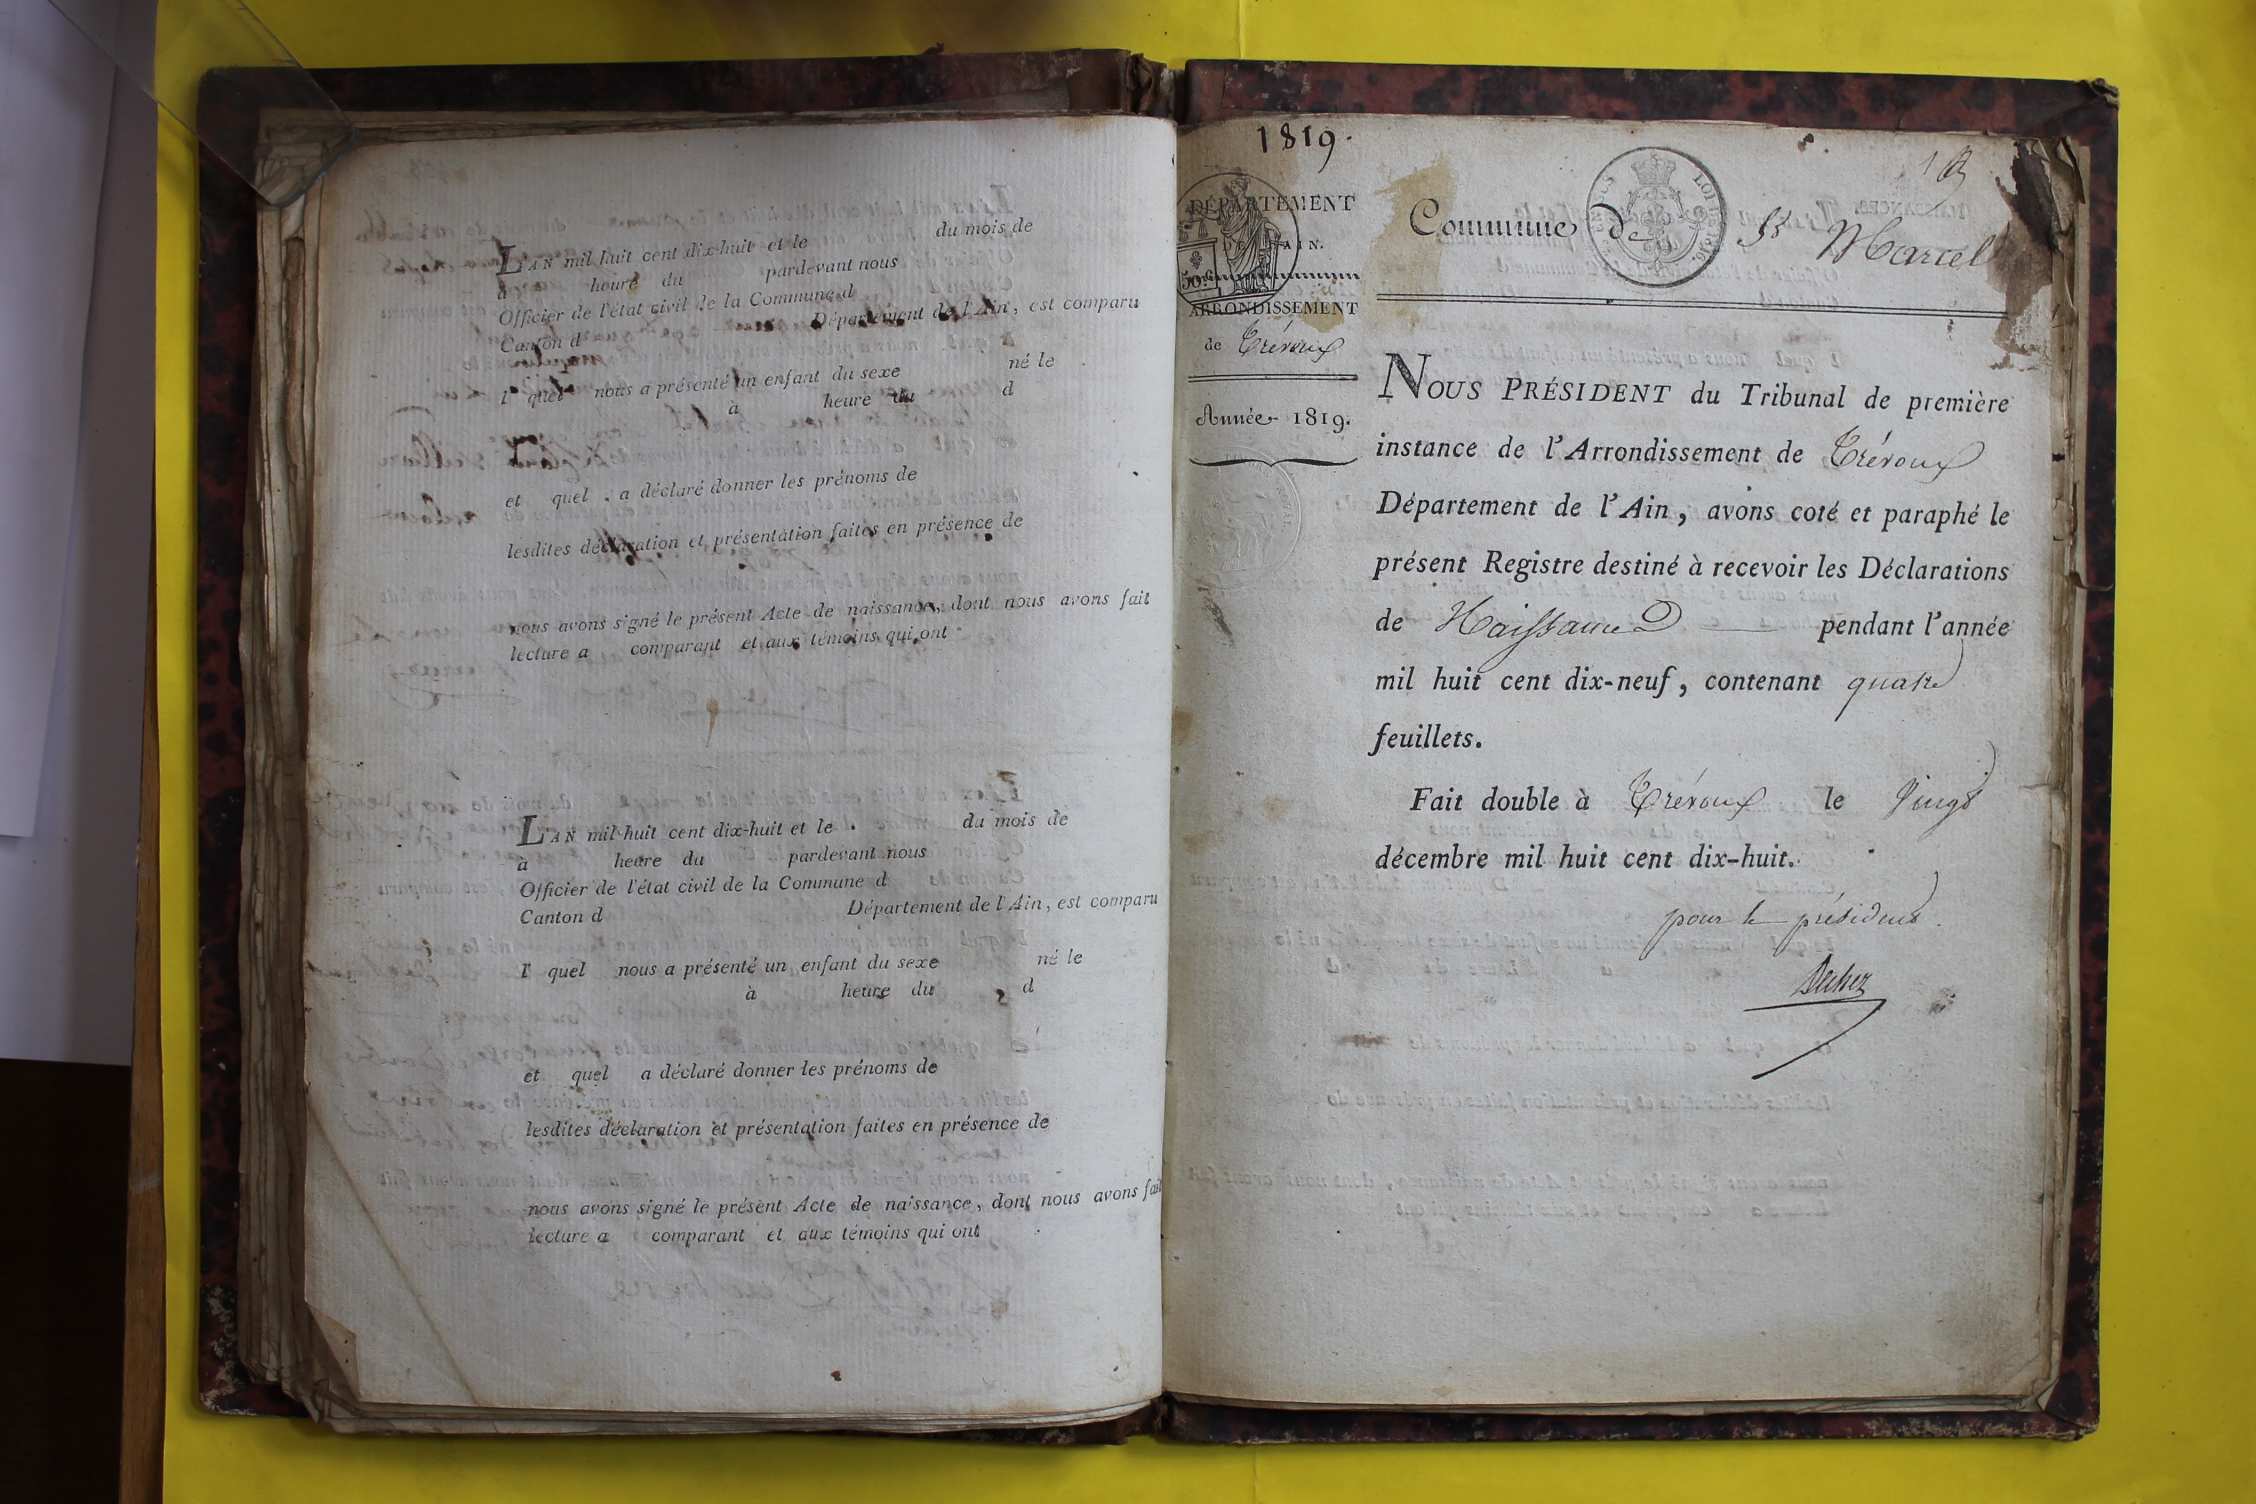 LAN mil huit cent dix-huit et le du mois de
à heure du pardevant nous
Officier de l'état civil de la Commune d
Canton d Département de l'Ain, est comparu
l quel nous a présenté un enfant du sexe né le
à heure du d
et quel a déclaré donner les prénoms de
lesdites déclaration et présentation faites en présence de
nous avons signé le présent Acte de naissance, dont nous avons fait
lecture a comparant et aux témoins qui ont
LAN mil huit cent dix-huit et le du mois de
à heure du pardevant nous
Officier de l'état civil de la Commune d
Canton d Département de l'Ain, est comparu
l quel nous a présenté un enfant du sexe né le
à heure du d
et quel a déclaré donner les prénoms de
lesdites déclaration et présentation faites en présence de
nous avons signé le présent Acte de naissance, dont nous avons fait
lecture a comparant et aux témoins qui ont
1819.
DÉPARTEMENT
DE L'AIN.
50c
ARRONDISSEMENT
de Trévoux
Année 1819.
Commune de St Marcel
LOI DE 1816.
NOUS PRÉSIDENT du Tribunal de première
instance de l'Arrondissement de Trévoux
Département de l'Ain, avons coté et paraphé le
présent Registre destiné à recevoir les Déclarations
de Naissance pendant l'année
mil huit cent dix-neuf, contenant quatre
feuillets.
Fait double à Trévoux le Vingt
décembre mil huit cent dix-huit.
pour le président